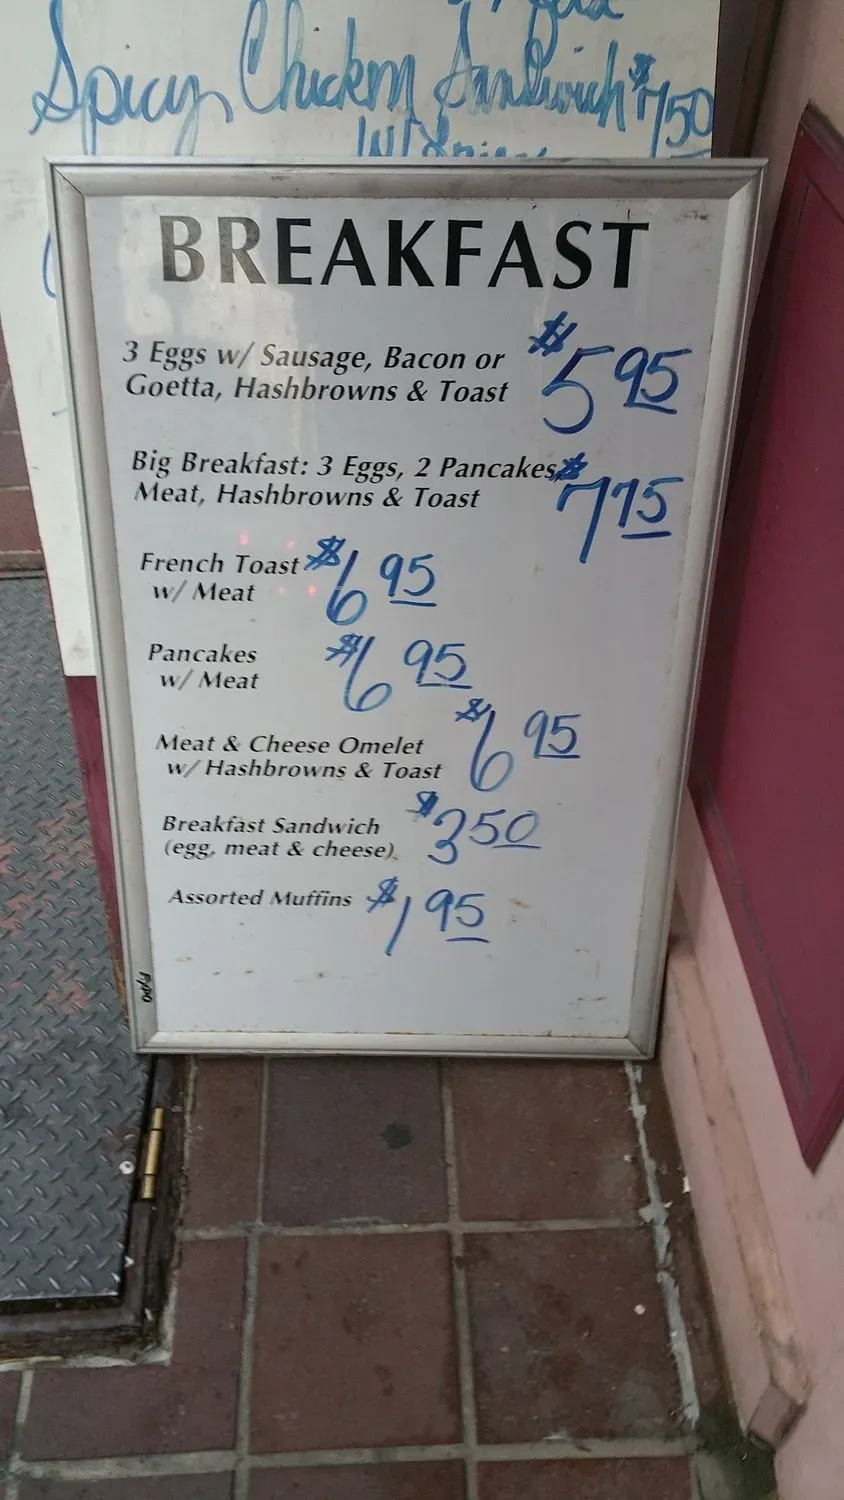 Spicy Chicken Sandwich $7.50
W/ Fries
BREAKFAST
3 Eggs w/ Sausage, Bacon or
Goetta, Hashbrowns & Toast $5 95
Big Breakfast: 3 Eggs, 2 Pancakes,
Meat, Hashbrowns & Toast $7 75
French Toast $6 95
w/ Meat
Pancakes $6 95
w/ Meat
Meat & Cheese Omelet $6 95
w/ Hashbrowns & Toast
Breakfast Sandwich $3 50
(egg, meat & cheese)
Assorted Muffins $1 95